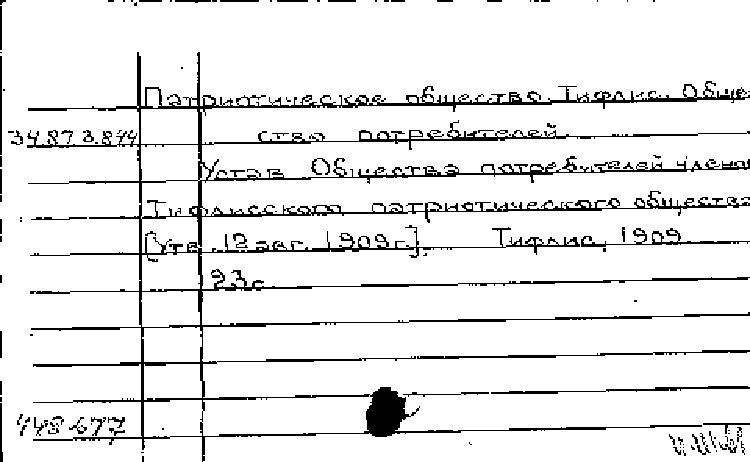 Патриотическое общество. Тифлис. Обще-
34873.844 ство потребителей
Устав Общества потребителей членов
Тифлисского патриотического общества
[Утв. 12 авг. 1909 г.]. Тифлис, 1909
23 с.
448677